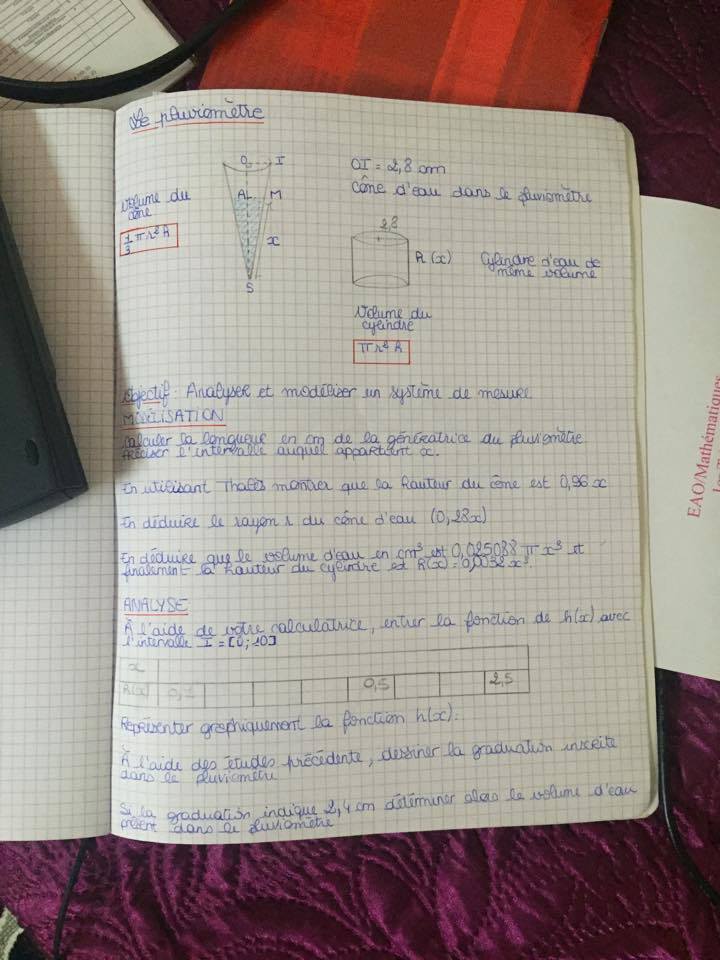 Le pluviomètre
O I
OI = 2,8 cm
Cône d'eau dans le pluviomètre
A M
volume du
cône
1/3 π r² h
x
S
2,8
h (x)
Cylindre d'eau de
même volume
Volume du
cylindre
π r² h
Objectif : Analyser et modéliser un système de mesure
MODÉLISATION
Calculer la longueur en cm de la génératrice du pluviomètre
Préciser l'intervalle auquel appartient x.
En utilisant Thalès montrer que la hauteur du cône est 0,96 x
En déduire le rayon r du cône d'eau (0,28x)
En déduire que le volume d'eau en cm³ est 0,025088 π x³ et
finalement la hauteur du cylindre est h(x) = 0,0032 x³
ANALYSE
À l'aide de votre calculatrice, entrer la fonction de h(x) avec
l'intervalle I = [0 ; 10]
x
h(x) 0,1 0,5 2,5
Représenter graphiquement la fonction h(x).
À l'aide des études précédente, dessiner la graduation inscrite
dans le pluviomètre
Si la graduation indique 2,4 cm déterminer alors le volume d'eau
présent dans le pluviomètre
EAO/Mathématiques